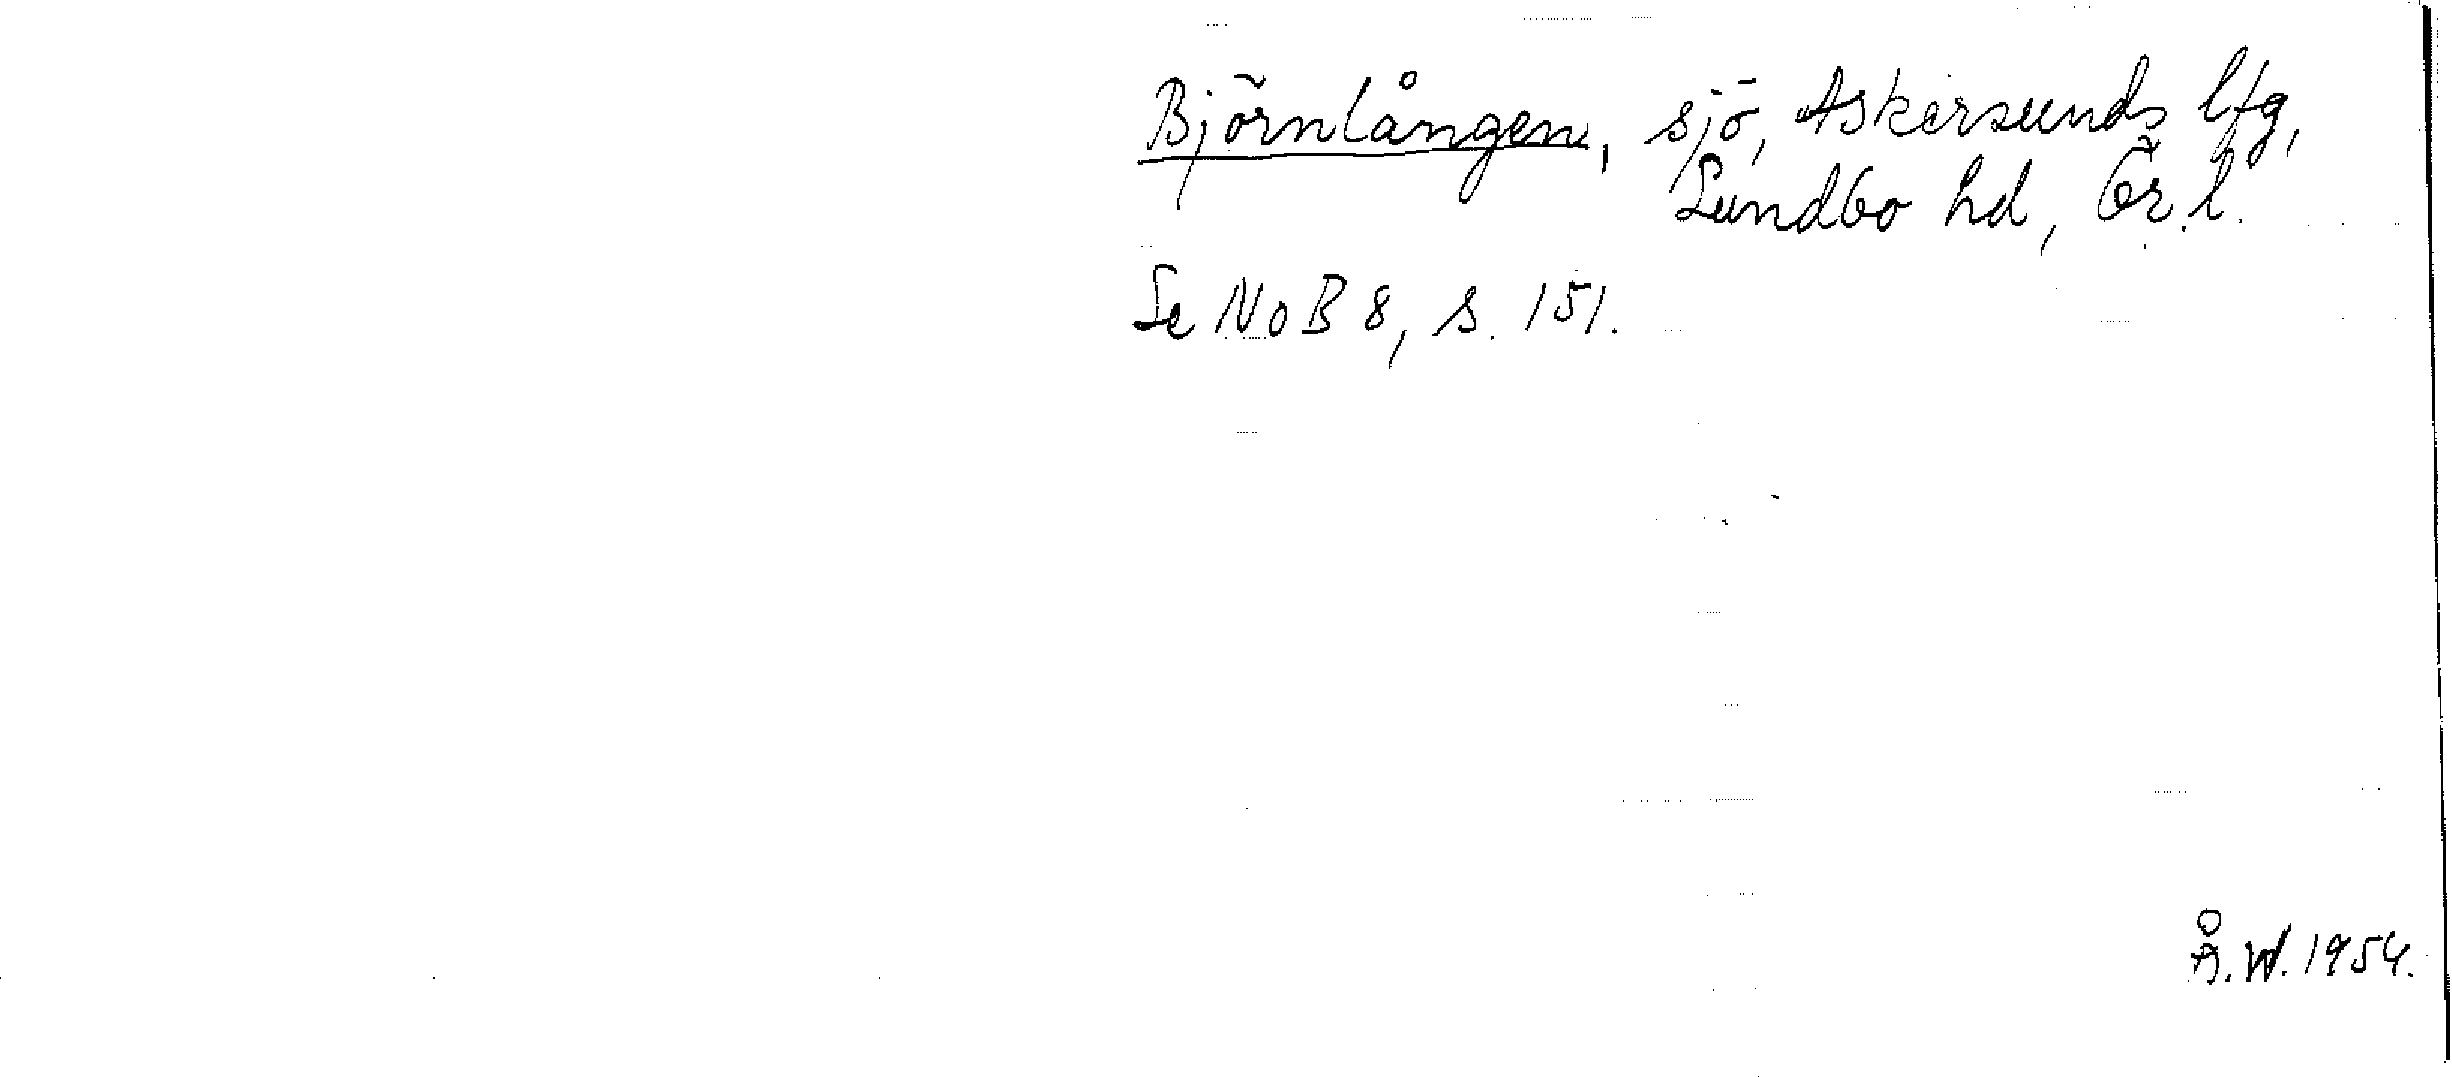 Björnlången, sjö, Askersunds lfg,
Sundbo hd, Ör. l.
Se NoB 8, s. 151.
Å. W. 1954.